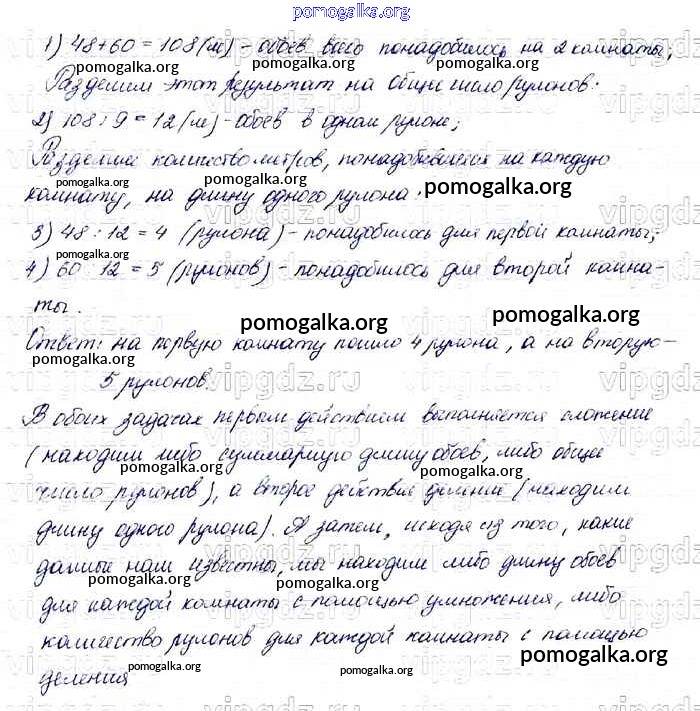 pomogalka.org
1) 48+60=108(м) - обоев всего понадобилось на 2 комнаты;
pomogalka.org
Разделим этот результат на общее число рулонов:
2) 108:9=12(м) - обоев в одном рулоне;
pomogalka.org
Разделив количество метров, понадобившееся на каждую
pomogalka.org pomogalka.org
комнату, на длину одного рулона:
3) 48:12=4 (рулона) - понадобилось для первой комнаты;
pomogalka.org
4) 60:12=5 (рулонов) - понадобилось для второй комна-
ты.
pomogalka.org pomogalka.org
Ответ: на первую комнату пошло 4 рулона, а на вторую -
5 рулонов.
В обоих задачах первым действием выполняется сложение
(находим либо суммарную длину обоев, либо общее
pomogalka.org pomogalka.org
число рулонов), а второе действие деление (находим
длину одного рулона). А затем, исходя из того, какие
данные нам известны, мы находим либо длину обоев
pomogalka.org pomogalka.org
для каждой комнаты с помощью умножения, либо
количество рулонов для каждой комнаты с помощью
pomogalka.org pomogalka.org pomogalka.org
деления